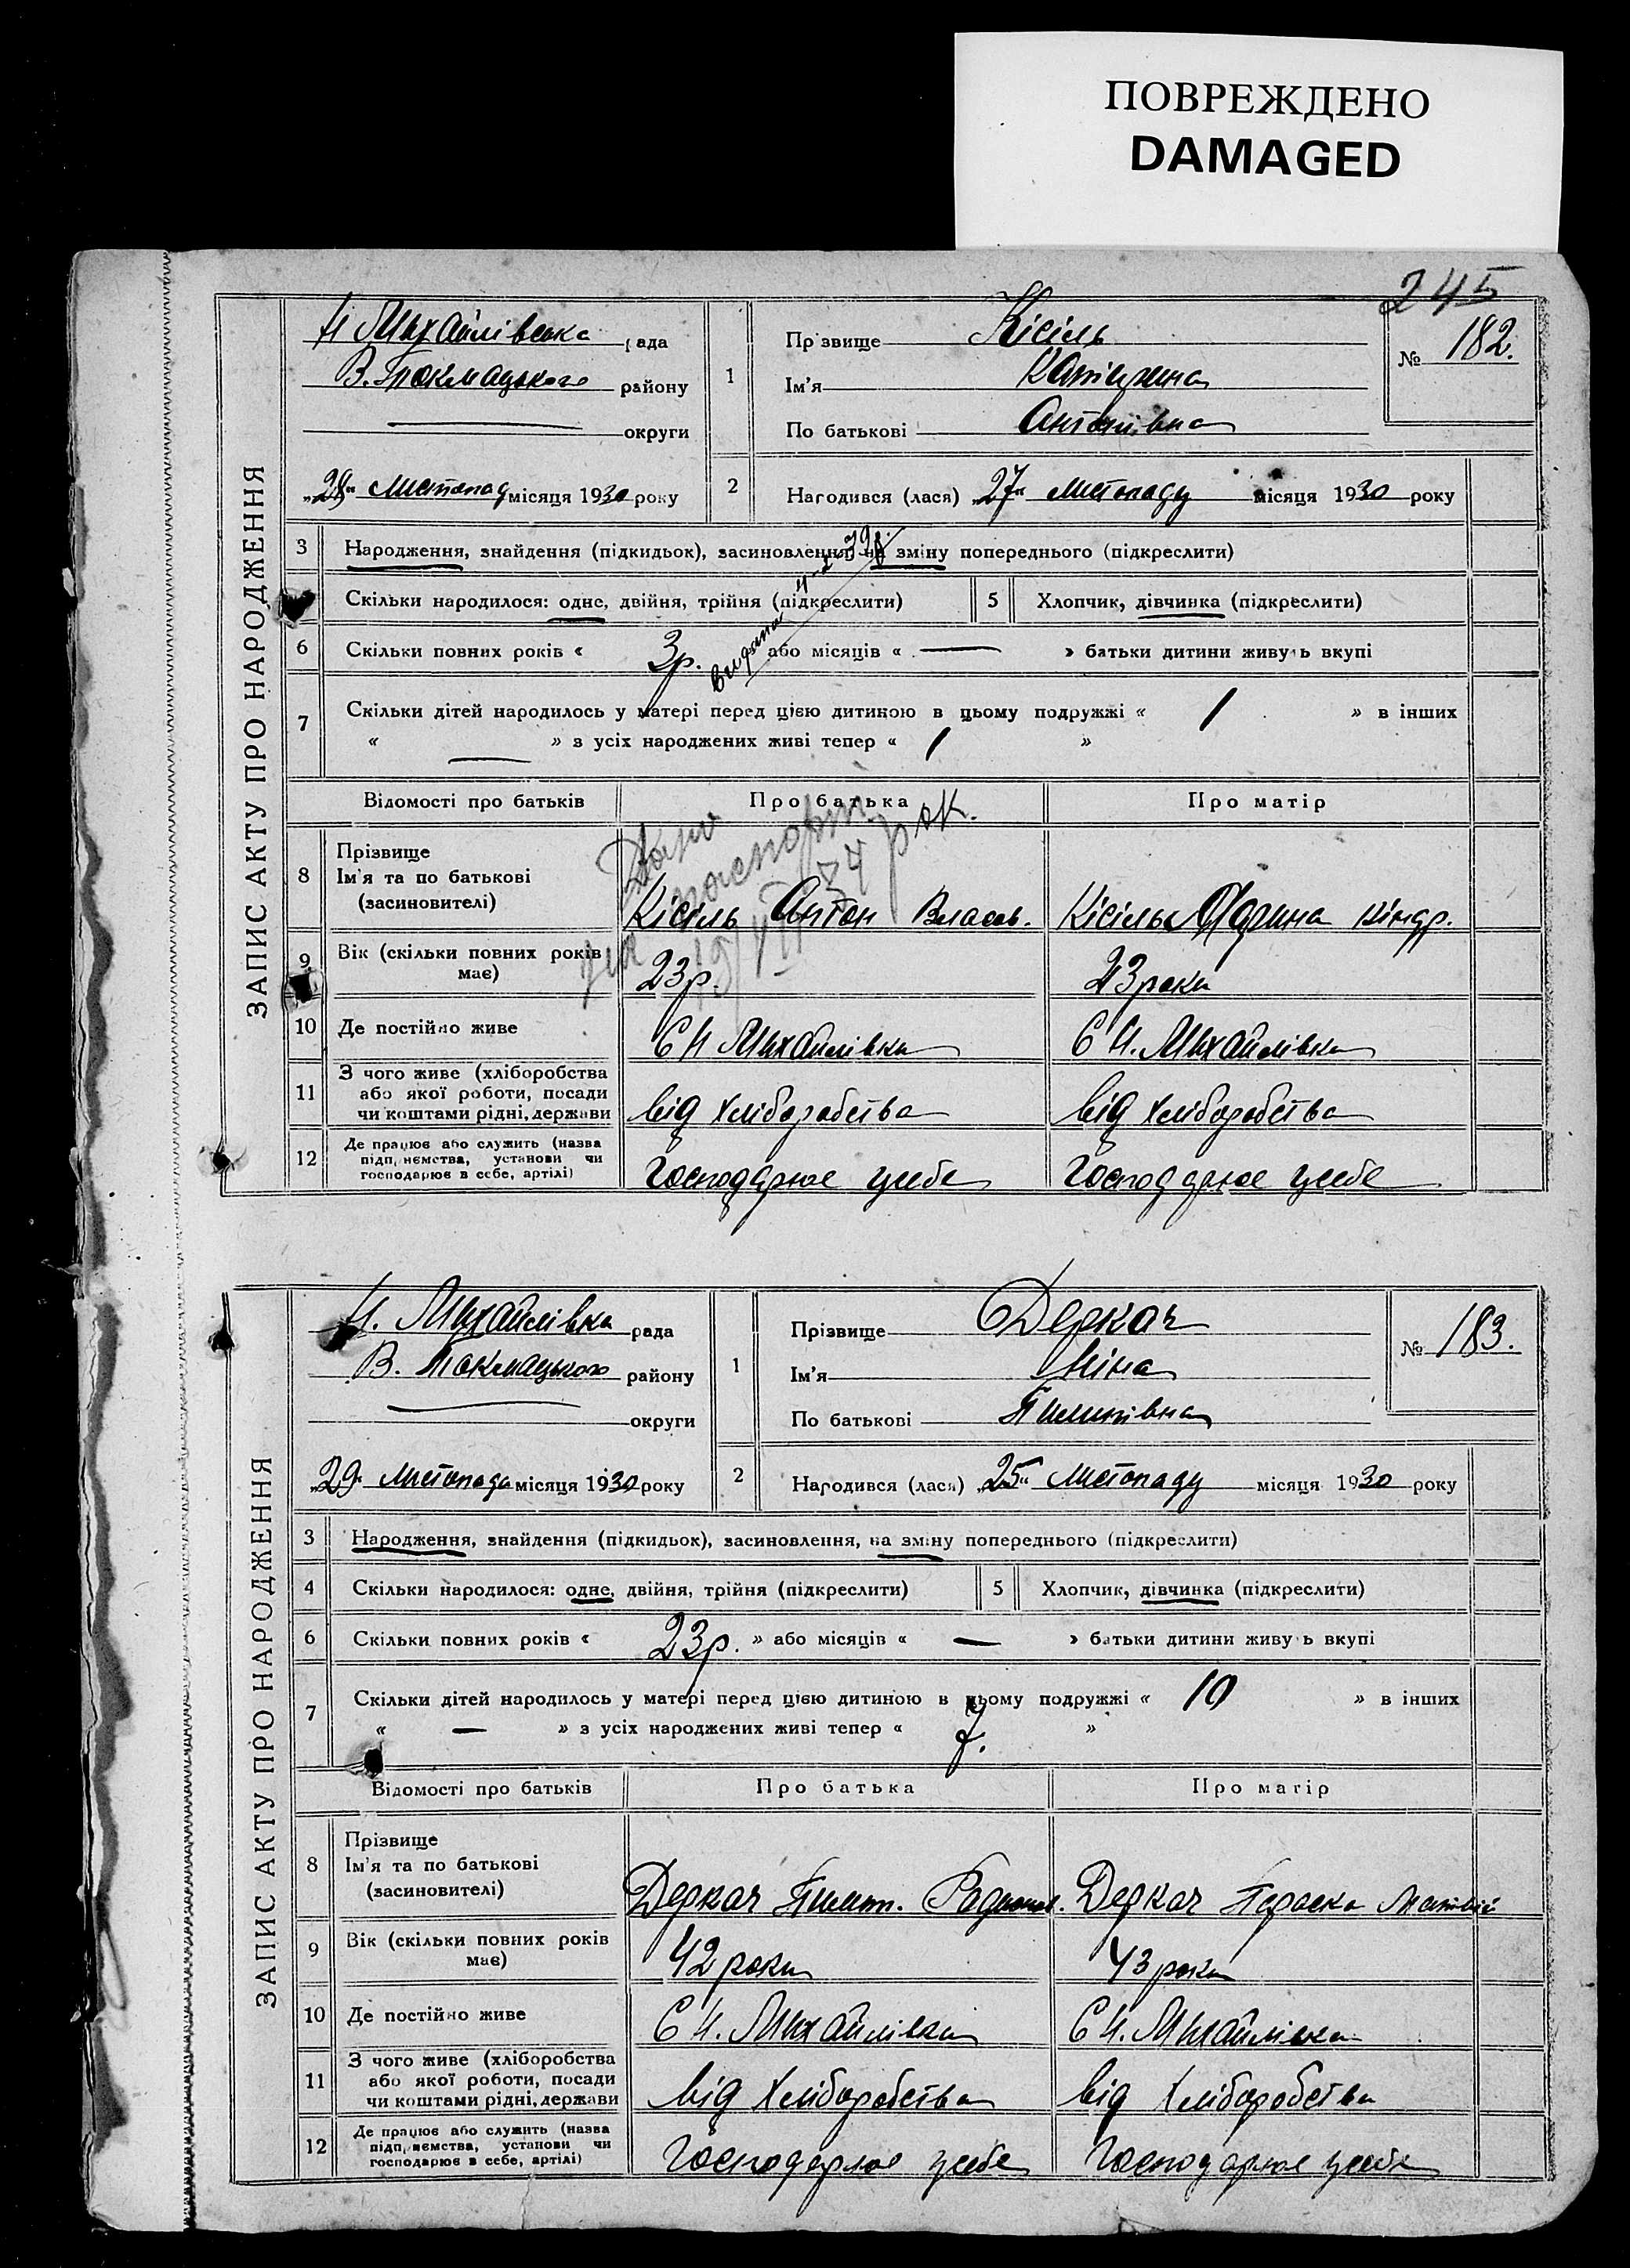 ПОВРЕЖДЕНО
DAMAGED
245
ЗАПИС АКТУ ПРО НАРОДЖЕННЯ
Н Михайлівська рада
В. Токмацького району
округи
„28“ Листопад місяця 1930 року
1
Прізвище Кісіль
Ім'я Катерина
По батькові Антонівна
№ 182.
2
Народився (лася) „27“ листопаду місяця 1930 року
3 Народження, знайдення (підкидьок), засиновлення, на зміну попереднього (підкреслити)
Скільки народилося: одне, двійня, трійня (підкреслити)
5 Хлопчик, дівчинка (підкреслити)
6 Скільки повних років « 3р. або місяців « — » батьки дитини живуть вкупі
7 Скільки дітей народилось у матері перед цією дитиною в цьому подружжі « 1 » в інших
« — » з усіх народжених живі тепер « 1 »
Відомості про батьків Про батька Про матір
Дано
для паспорт.
34 рок.
8 Прізвище
Ім'я та по батькові
(засиновителі)
Кісіль Антон Власов. Кісіль Кіндр.
9 Вік (скільки повних років
має)
23р. 23 роки
10 Де постійно живе С Н Михайлівка С Н. Михайлівка
11 З чого живе (хліборобства
або якої роботи, посади
чи коштами рідні, держави
від хліборобства від хліборобства
12 Де працює або служить (назва
підприємства, установи чи
господарює в себе, артілі)
Господарює усебе Господарює усебе
ЗАПИС АКТУ ПРО НАРОДЖЕННЯ
Н. Михайлівка рада
В. Токмацького району
округи
„29“ Листопада місяця 1930 року
1
Прізвище Деркач
Ім'я Ніна
По батькові Пилипівна
№ 183.
2
Народився (лася) „25“ Листопаду місяця 1930 року
3 Народження, знайдення (підкидьок), засиновлення, на зміну попереднього (підкреслити)
4 Скільки народилося: одне, двійня, трійня (підкреслити)
5 Хлопчик, дівчинка (підкреслити)
6 Скільки повних років « 23р. » або місяців « — » батьки дитини живуть вкупі
7 Скільки дітей народилось у матері перед цією дитиною в цьому подружжі « 10 » в інших
« — » з усіх народжених живі тепер « 7. »
Відомості про батьків Про батька Про матір
8 Прізвище
Ім'я та по батькові
(засиновителі)
Деркач Пилип. Радионов. Деркач Параска Матвій
9 Вік (скільки повних років
має)
42 роки 43 роки
10 Де постійно живе С Н. Михайлівка С Н. Михайлівка
11 З чого живе (хліборобства
або якої роботи, посади
чи коштами рідні, держави
від хліборобства від хліборобства
12 Де працює або служить (назва
підприємства, установи чи
господарює в себе, артілі)
Господарює усебе Господарює усебе